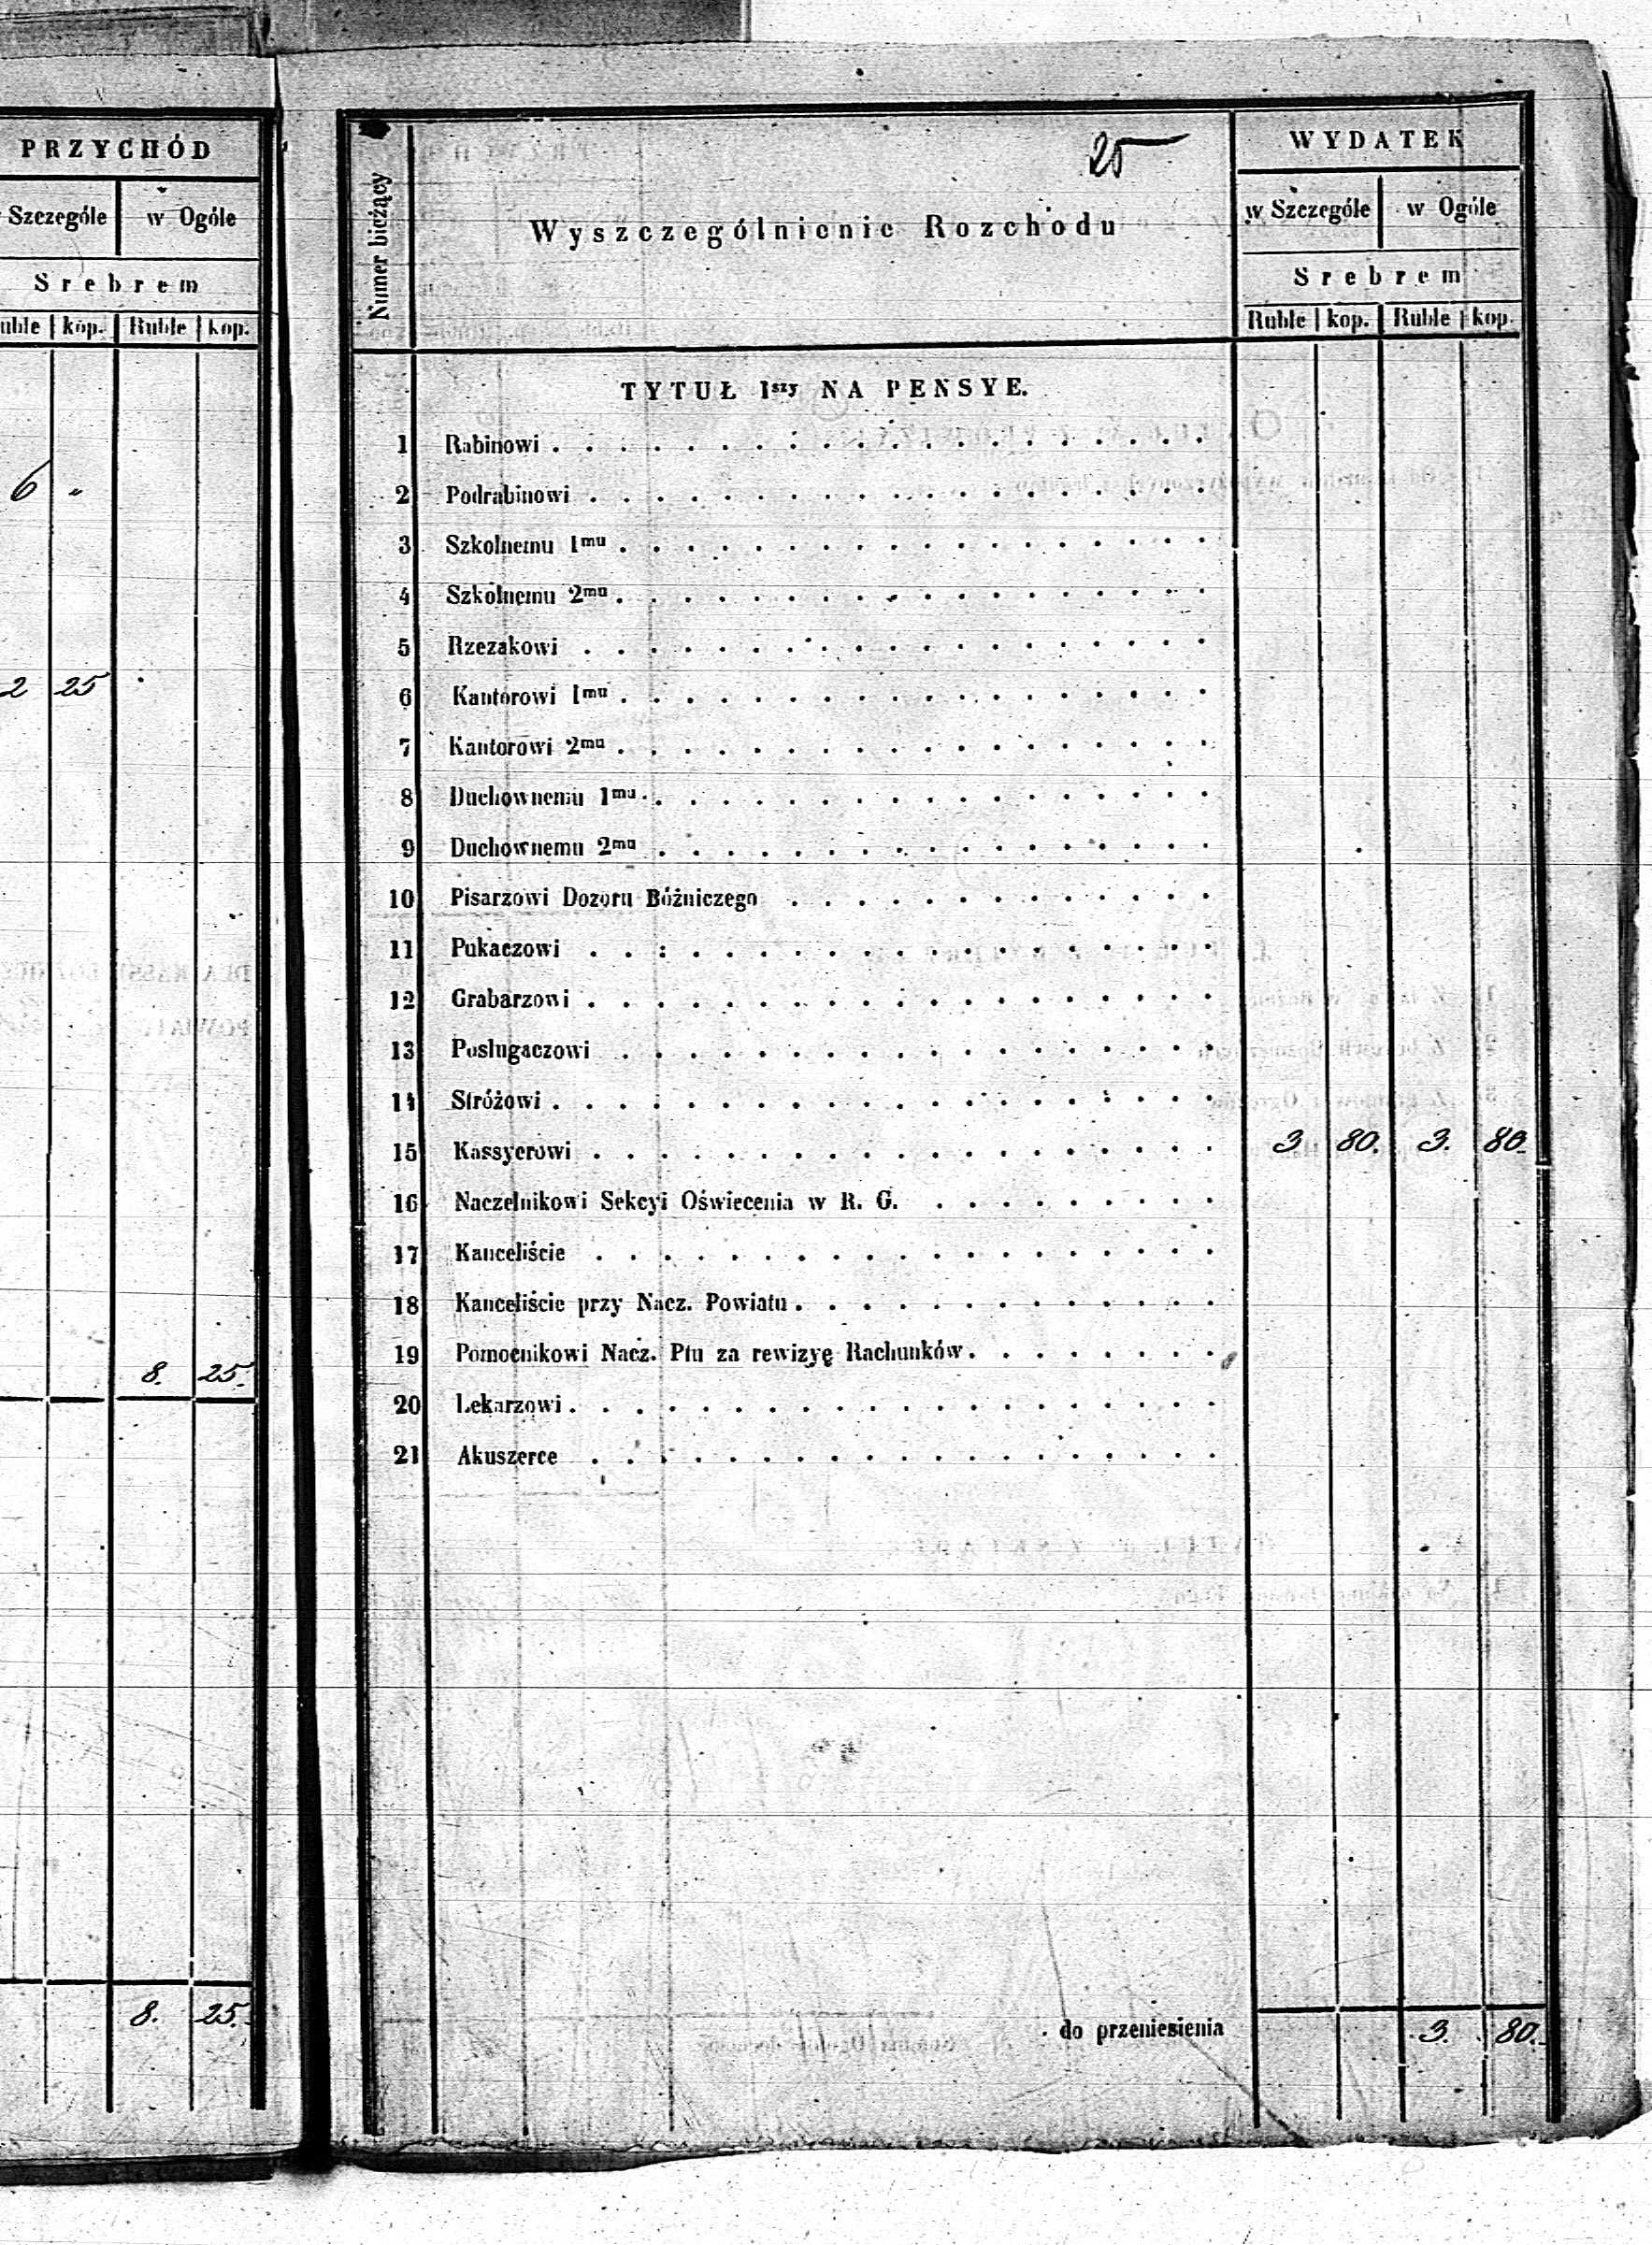 PRZYCHÓD
Szczególe w Ogóle
Srebrem
kop. Ruble kop.
6 "
2 25
8. 25.
8. 25.
25
Numer bieżący
Wyszczególnienie Rozchodu
WYDATEK
w Szczególe w Ogóle
Srebrem
Ruble kop. Ruble kop.
TYTUŁ 1szy NA PENSYE.
1 Rabinowi
2 Podrabinowi
3 Szkolnemu 1mu
4 Szkolnemu 2mu
5 Rzezakowi
6 Kantorowi 1mu
7 Kantorowi 2mu
8 Duchownemu 1mu
9 Duchownemu 2mu
10 Pisarzowi Dozoru Bóżniczego
11 Pukaczowi
12 Grabarzowi
13 Posługaczowi
14 Stróżowi
15 Kassyerowi 3 80. 3. 80.
16 Naczelnikowi Sekcyi Oświecenia w R. G.
17 Kanceliście
18 Kanceliście przy Nacz. Powiatu
19 Pomocnikowi Nacz. Ptu za rewizyę Rachunków
20 Lekarzowi
21 Akuszerce
do przeniesienia 3. 80.